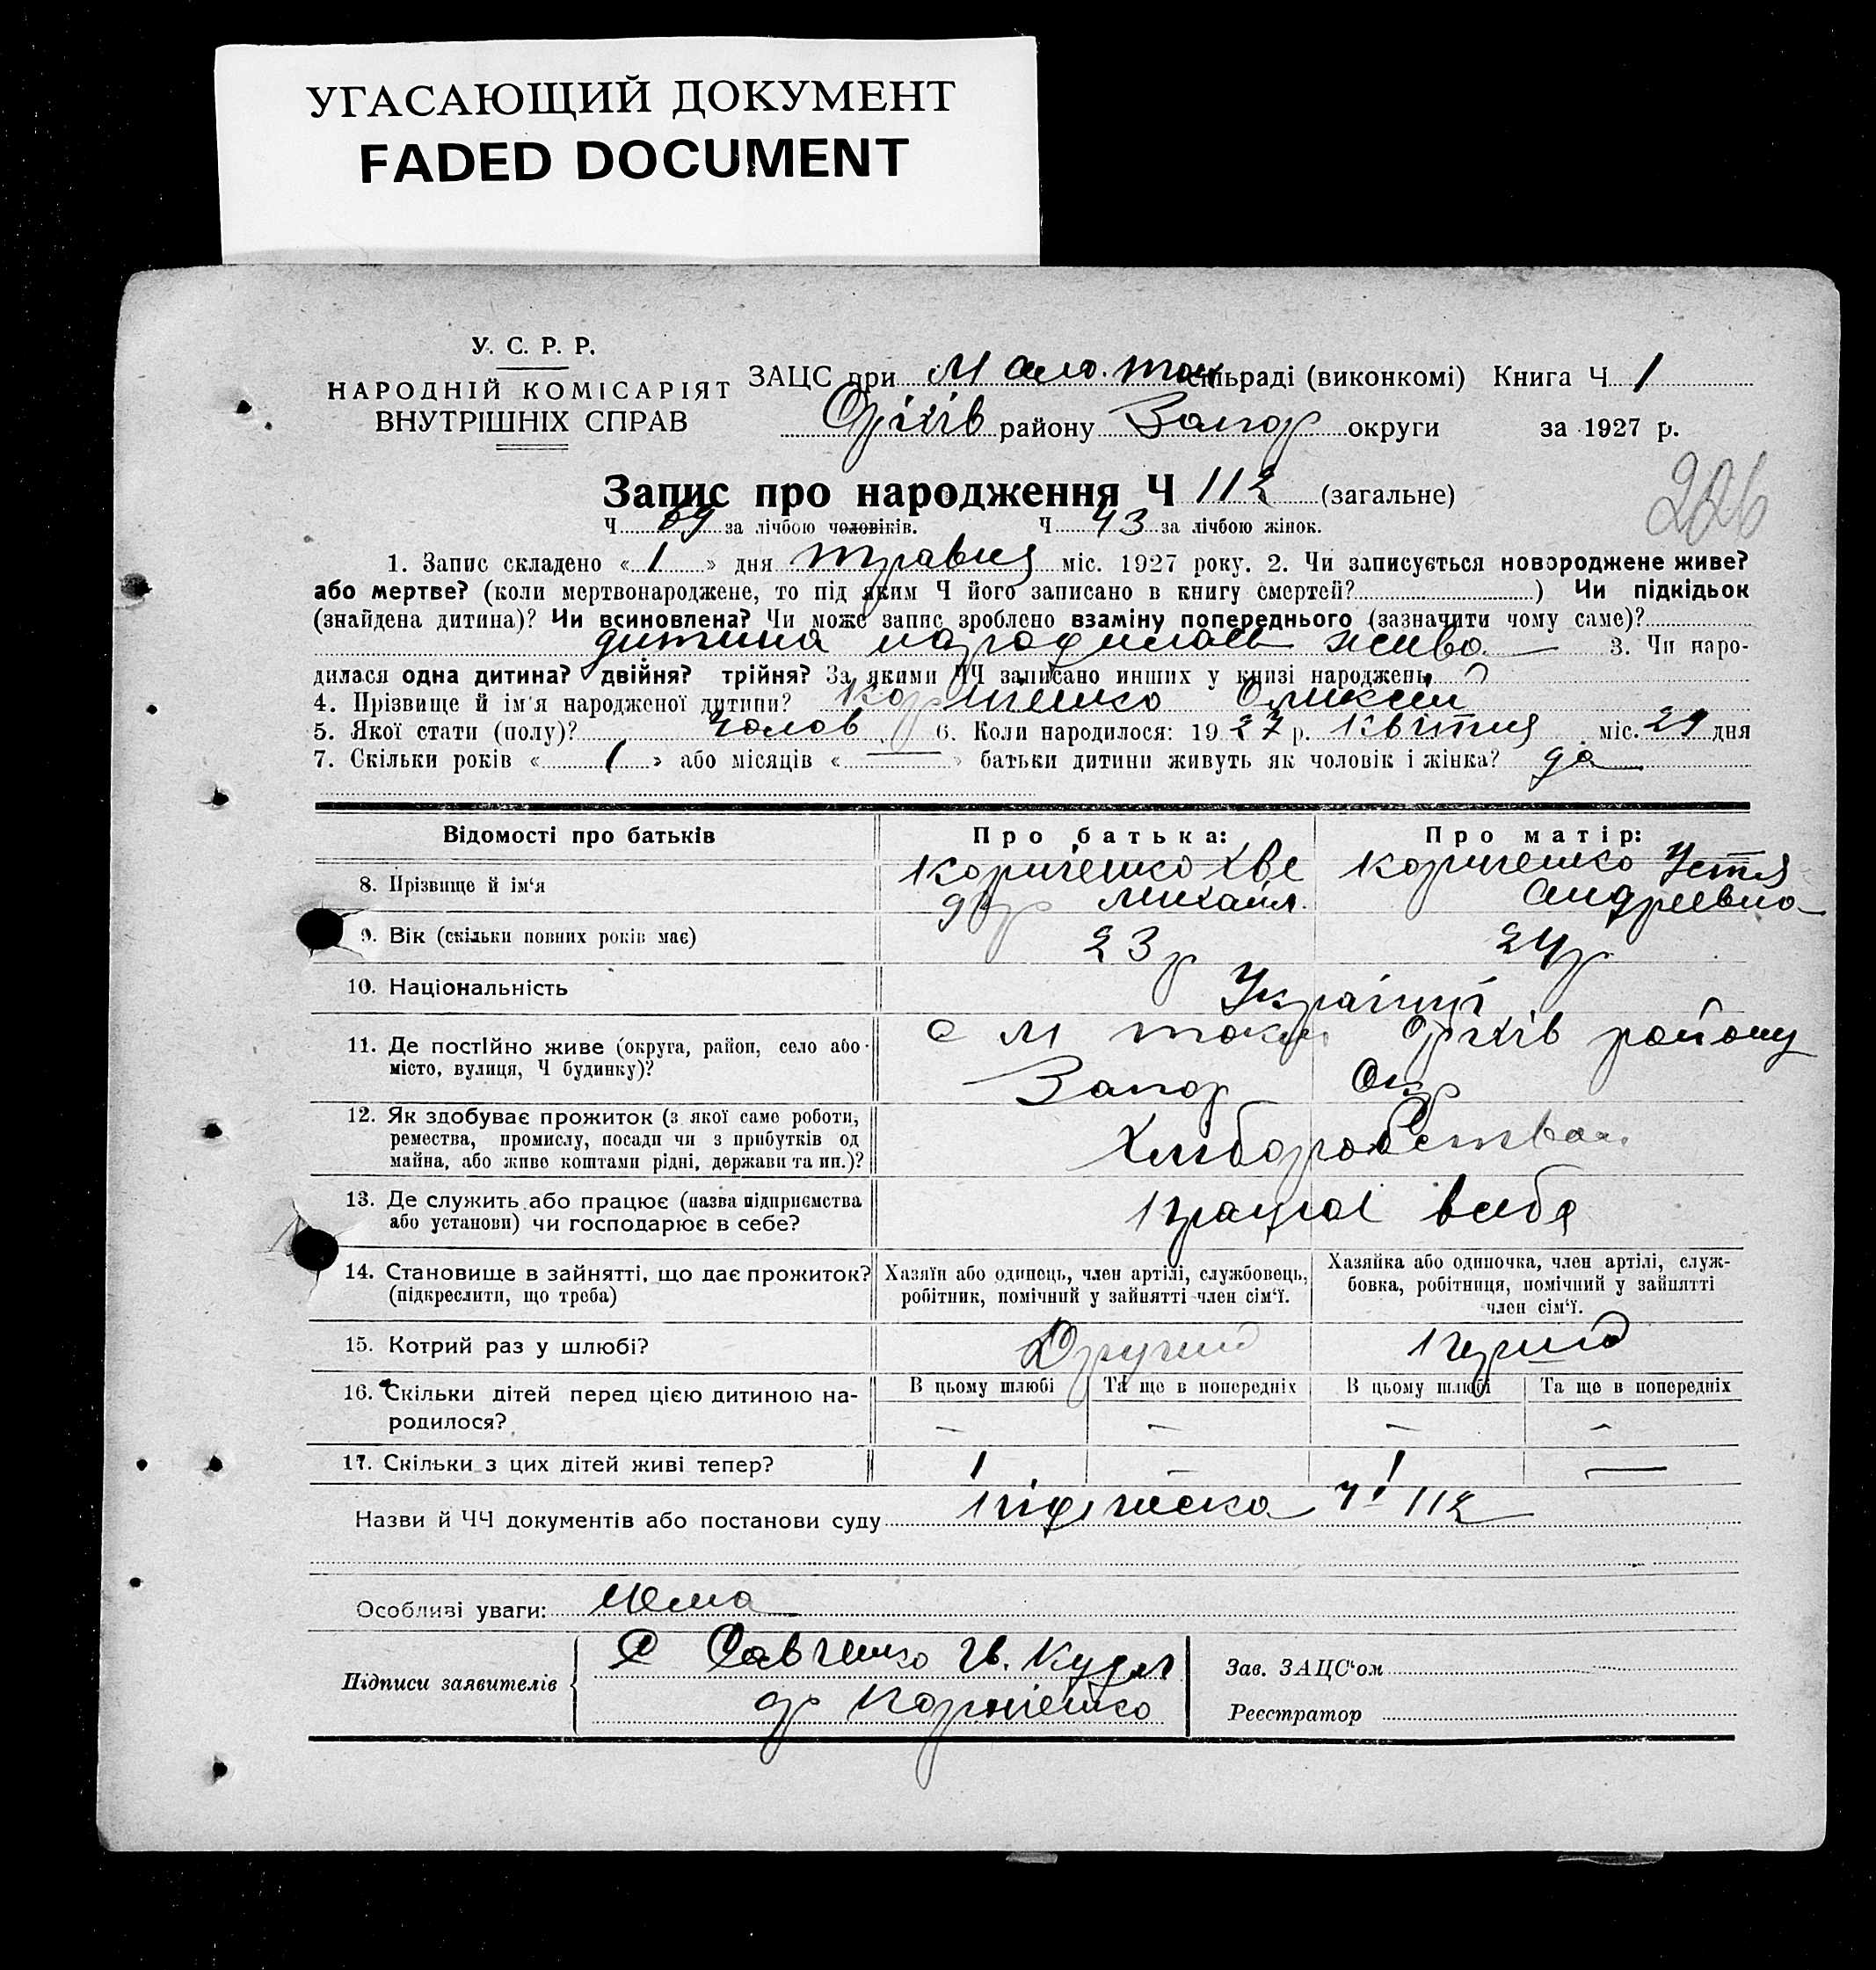 УГАСАЮЩИЙ ДОКУМЕНТ
FADED DOCUMENT
У. С. Р. Р.
НАРОДНІЙ КОМІСАРІЯТ
ВНУТРІШНІХ СПРАВ
ЗАЦС при М Само. ток сільраді (виконкомі) Книга Ч 1
Оріхів району Запор округи за 1927 р.
Запис про народження Ч 112 (загальне)
226
Ч 69 за лічбою чоловіків. Ч 43 за лічбою жінок.
1. Запис складено « 1 » дня травня міс. 1927 року. 2. Чи записується новороджене живе?
або мертве? (коли мертвонароджене, то під яким Ч його записано в книгу смертей? ) Чи підкідьок
(знайдена дитина)? Чи всиновлена? Чи може запис зроблено взаміну попереднього (зазначити чому саме)?
дитина народилась жива — 3. Чи наро-
дилася одна дитина? двійня? трійня? За якими ЧЧ записано инших у книзі народжень
4. Прізвище й ім'я народженої дитини? Корниенко Оликсій
5. Якої стати (полу)? Чолов 6. Коли народилося: 19 27 р. Квітня міс. 29 дня
7. Скільки років « 1 » або місяців « — » батьки дитини живуть як чоловік і жінка? да
Відомості про батьків Про батька: Про матір:
8. Прізвище й ім'я Корниенко Хве Корниенко Устя
дор Михайл. Андреевна
9. Вік (скільки повних років має) 23 р 24 р
10. Національність Україн
11. Де постійно живе (округа, район, село або с М Оріхів району
місто, вулиця, Ч будинку)? Запор Окр
12. Як здобуває прожиток (з якої саме роботи,
ремества, промислу, посади чи з прибутків од Хліборобством
майна, або живе коштами рідні, держави та ин.)?
13. Де служить або працює (назва підприємства
або установи) чи господарює в себе? Працює всебя
14. Становище в зайнятті, що дає прожиток? Хазяїн або одинець, член артілі, службовець, Хазяйка або одиночка, член артілі, служ-
(підкреслити, що треба) робітник, помічний у зайнятті член сім'ї. бовка, робітниця, помічний у зайнятті
член сім'ї.
15. Котрий раз у шлюбі? Другий Перший
16. Скільки дітей перед цією дитиною на- В цьому шлюбі Та ще в попередніх В цьому шлюбі Та ще в попередніх
родилося? — — — —
17. Скільки з цих дітей живі тепер? 1 — 1 —
Назви й ЧЧ документів або постанови суду Підписка Ч 112
Особливі уваги: Нема
Підписи заявителів С Савченко
Корниенко
Зав. ЗАЦС'ом
Реєстратор